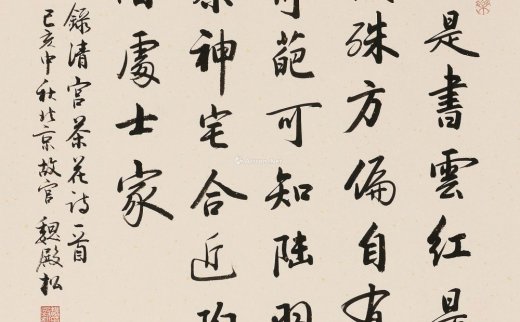 是書雲紅是
殊方偏自有
葩可知陸羽
神宅合近
處士家
錄清宮茶花詩一首
己亥中秋北京故宮 魏殿松